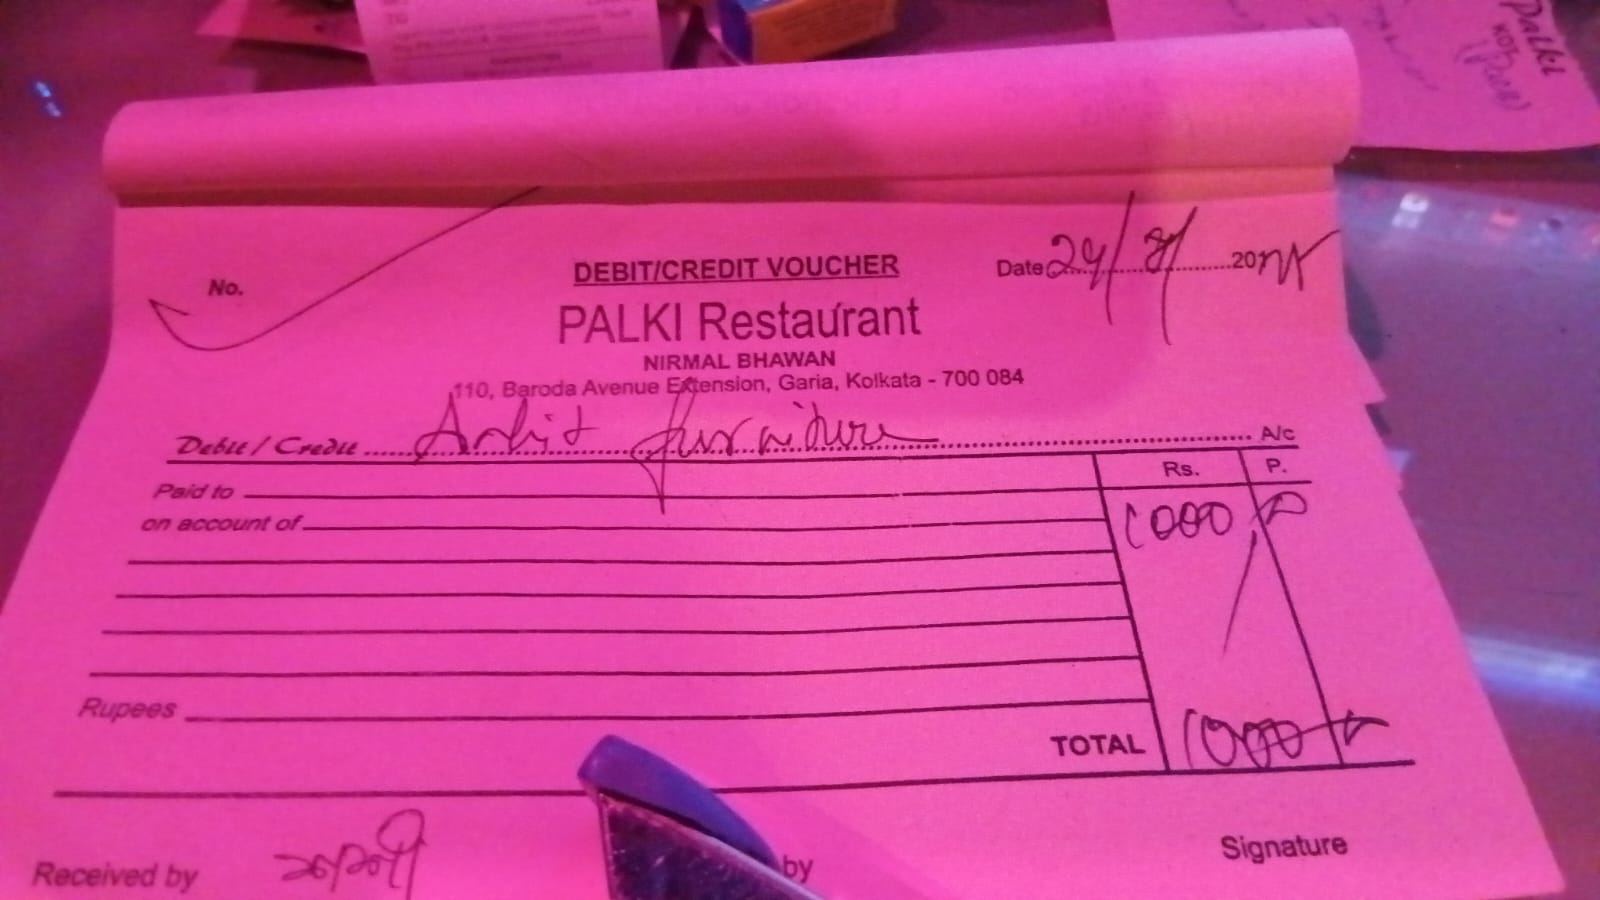 Palki
KOT
No.
DEBIT/CREDIT VOUCHER
Date 24/8/ 20
PALKI Restaurant
NIRMAL BHAWAN
110, Baroda Avenue Extension, Garia, Kolkata - 700 084
Debit / Credit Ankit furniture A/c
Rs. P.
Paid to
on account of 1000
Rupees
TOTAL 1000
Received by by Signature